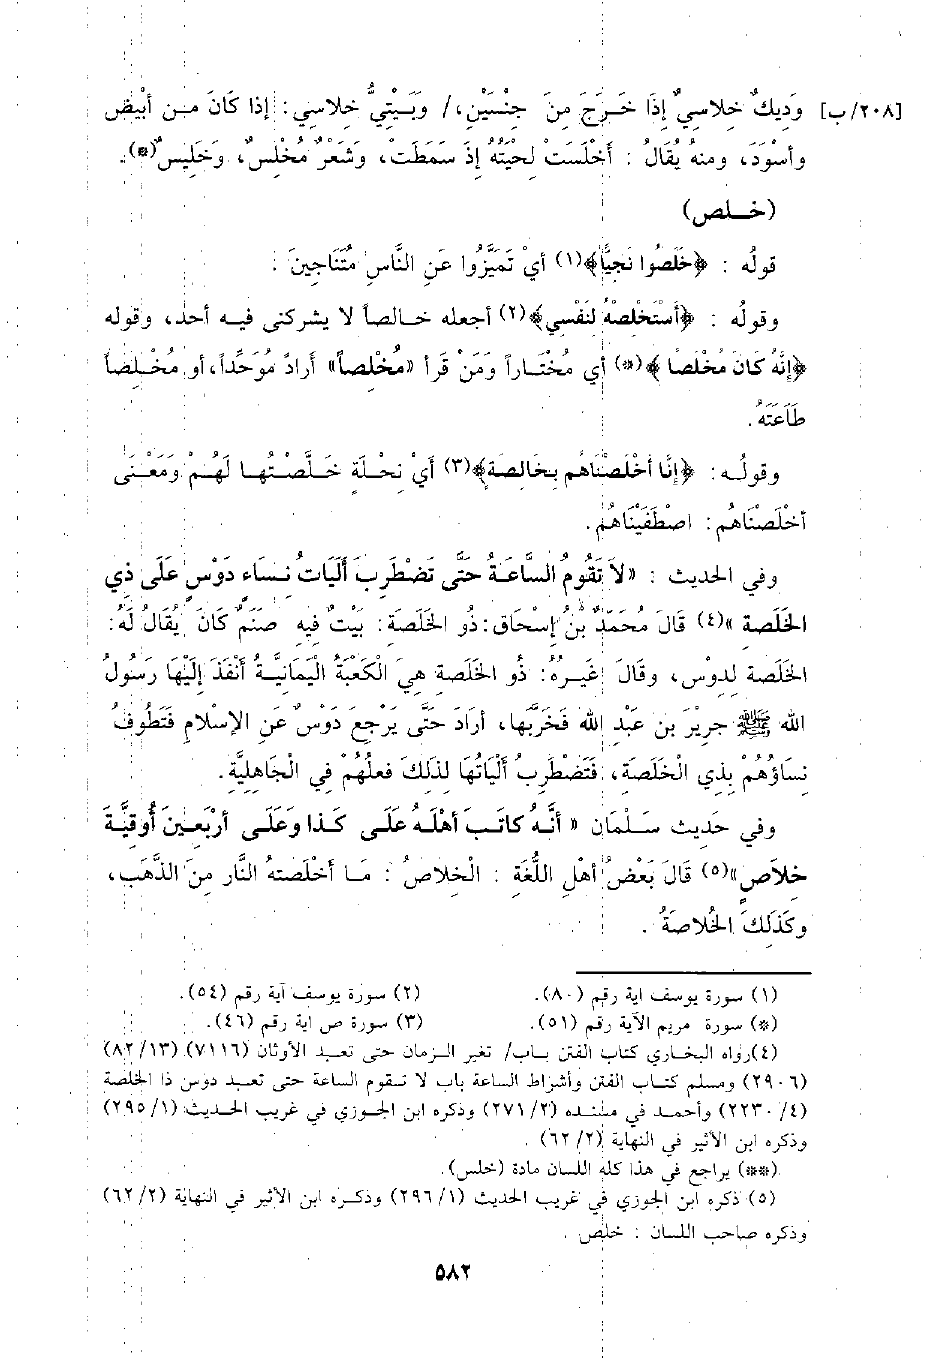 [٢٠٨/ب] وَدِيكٌ خِلاسِيٌّ إِذَا خَرَجَ مِنَ جِنْسَيْنِ، / وَبَيْتِيٌّ خلاسي: إذا كَانَ من أبْيَض
وأسْوَدَ، ومنهُ يُقَالُ : أَخْلَسَتْ لحْيَتُهُ إذَ سَمَطَتْ، وَشَعْرٌ مُخْلِسٌ، وَخَلِيسٌ(*).
(خلص)
قولُه : ﴿خَلَصُوا نَجِيًّا﴾(١) أيْ تَمَيَّزُوا عَنِ النَّاسِ مُتَنَاجِينَ .
وقولُه : ﴿أَسْتَخْلِصْهُ لنَفْسِي﴾(٢) أجعله خالصاً لا يشركنى فيه أحد، وقوله
﴿إنَّهُ كَانَ مُخْلَصا ﴾(*) أي مُخْتَاراً وَمَنْ قرأ «مُخْلِصاً» أرَادَ مُوَحِّداً، أو مُخْلِصاً
طَاعَتَهُ.
وقولُه: ﴿إنَّا أخْلَصْنَاهُم بِخَالِصة﴾(٣) أيْ نِحْلَةٍ خَلَّصْتُهَا لَهُمْ وَمَعْنَى
أخْلَصْنَاهُم: اصْطَفَيْنَاهُم.
وفي الحديث : «لاَ تَقُومُ السَّاعَةُ حَتَّى تَضْطَرِبَ أَلَيَاتُ نِسَاءِ دَوْسٍ عَلَى ذِي
الخَلَصَة »(٤) قَالَ مُحَمَّدٌ بْنُ إسْحَاقَ: ذُو الخَلَصَة: بَيْتٌ فِيه صَنَمٌ كَانَ يُقَالُ لَهُ:
الخَلَصَة لِدَوْسِ، وقَالَ غَيْرُهُ: ذُو الخَلَصةِ هِيَ الْكَعْبَةُ الْيَمَانِيَّةُ أنْفَذَ إلَيْهَا رَسُولُ
الله ﷺ جرِيْرَ بن عَبْدِ الله فَخَرَّبَها، أرَادَ حَتَّى يَرْجِعَ دَوْسٌ عَنِ الإسْلامِ فَتَطُوفُ
نِسَاؤُهُمْ بِذِي الْخَلَصَة، فَتَضْطَرِبُ ألْيَاتُهَا لِذَلِكَ فعلَهُمْ فِي الْجَاهِلِيَّةِ.
وفي حَدِيث سَلْمَان « أنَّهُ كَاتَبَ أهْلَهُ عَلَى كَذا وَعَلَى أرْبَعِينَ أُوقِيَّةَ
خِلاَصٍ»(٥) قَالَ بَعْضُ أهْلِ اللُّغَةِ : الْخلاصُ : مَا أَخْلَصَتْهُ النَّار مِنَ الذَّهَبِ،
وكَذَلكَ الخُلاصَةُ .
(١) سورة يوسف اية رقم (٨٠). (٢) سورة يوسف آية رقم (٥٤).
(*) سورة مريم الآية رقم (٥١). (٣) سورة ص اية رقم (٤٦).
(٤)رواه البخاري كتاب الفتن باب/ تغير الزمان حتى تعبد الأوثان (٧١١٦) (٨٢/١٣)
(٢٩٠٦) ومسلم كتاب الفتن وأشراط الساعة باب لا تقوم الساعة حتى تعبد دوس ذا الخلصة
(٢٢٣٠/٤) وأحمد في مسنده (٢٧١/٢) وذكره ابن الجوزي في غريب الحديث (٢٩٥/١)
وذكره ابن الأثير في النهاية (٦٢/٢) .
(**) يراجع في هذا كله اللسان مادة (خلس).
(٥) ذكره ابن الجوزي في غريب الحديث (٢٩٦/١) وذكره ابن الأثير في النهاية (٦٢/٢)
وذكره صاحب اللسان : خلص .
٥٨٢